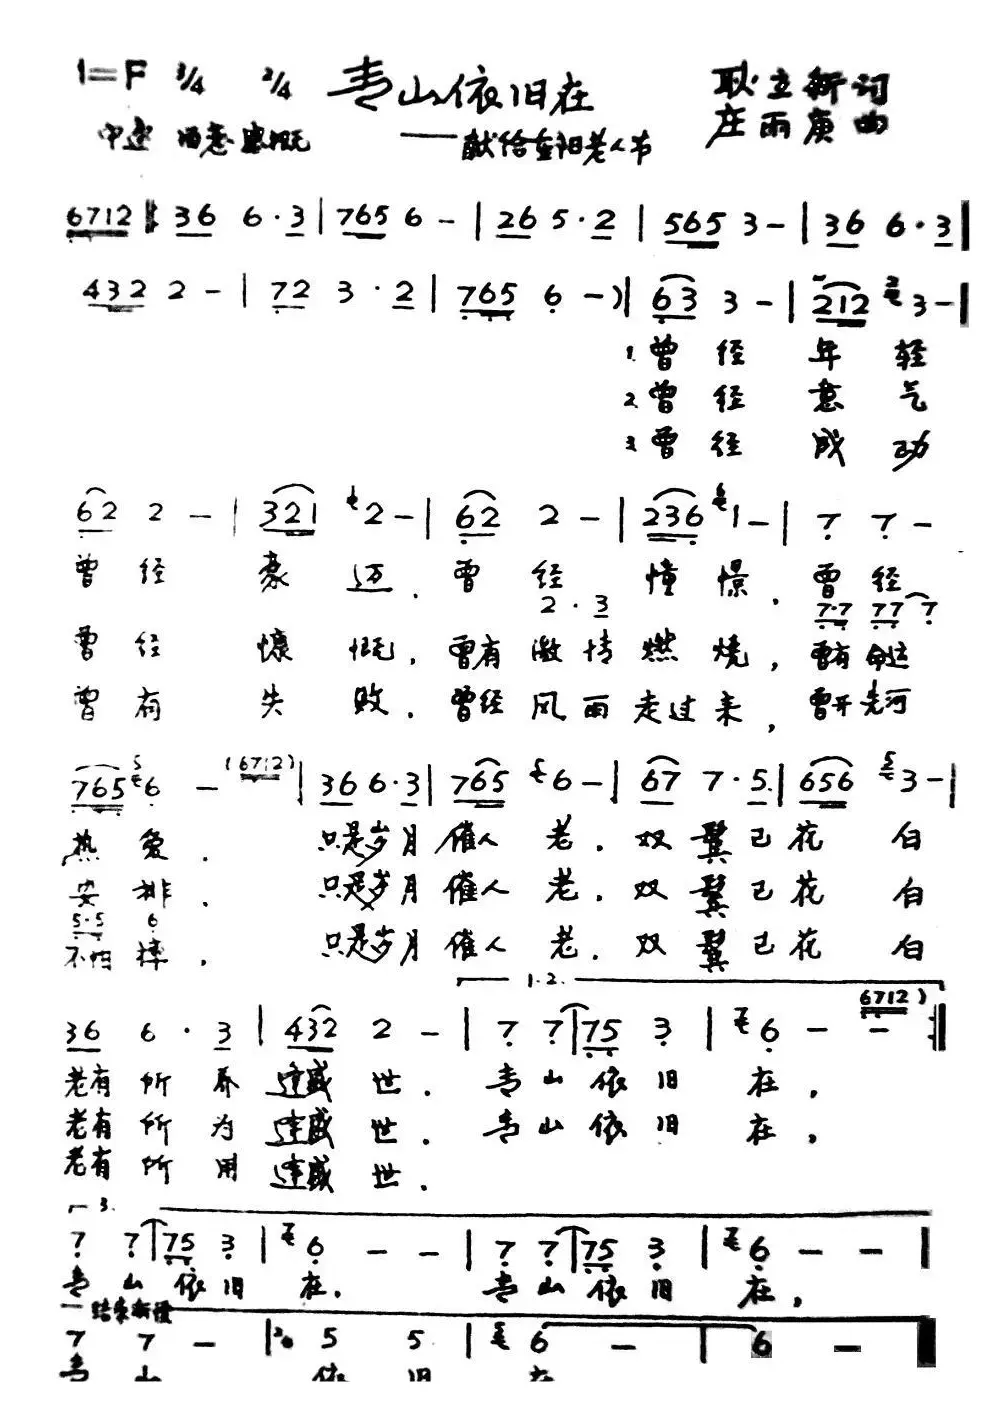 1=F 3/4 2/4 青山依旧在 耿立新词
中速 感慨 ——献给重阳老人节 庄雨庚曲
6712 ‖: 36 6·3 | 765 6 - | 26 5·2 | 565 3 - | 36 6·3 |
432 2 - | 72 3·2 | 765 6 -) | 63 3 - | 212 3 - |
1.曾经年轻
2.曾经意气
3.曾经成功
62 2 - | 321 2 - | 62 2 - | 236 1 - | 7 7 -
曾经豪迈,曾经憧憬,曾经
2·3 7·7 77 7
曾经慷慨,曾有激情燃烧,曾有命运
曾有失败,曾经风雨走过来,曾开先河
765 6 - (6712) | 36 6·3 | 765 6 - | 67 7·5 | 656 3 - |
热爱, 只是岁月催人老,双鬓已花白
安排, 只是岁月催人老,双鬓已花白
5·5 6
不怕摔, 只是岁月催人老,双鬓已花白
1.2.
36 6·3 | 432 2 - | 7 7 | 75 3 | 6 - - (6712) :‖
老有所养逢盛世,青山依旧在,
老有所为逢盛世,青山依旧在,
老有所用逢盛世,
3.
7 7 | 75 3 | 6 - - | 7 7 | 75 3 | 6 - - |
青山依旧在, 青山依旧在,
结束渐慢
7 7 - | 5 5 | 6 - - | 6 - - ‖
青山 依旧 在